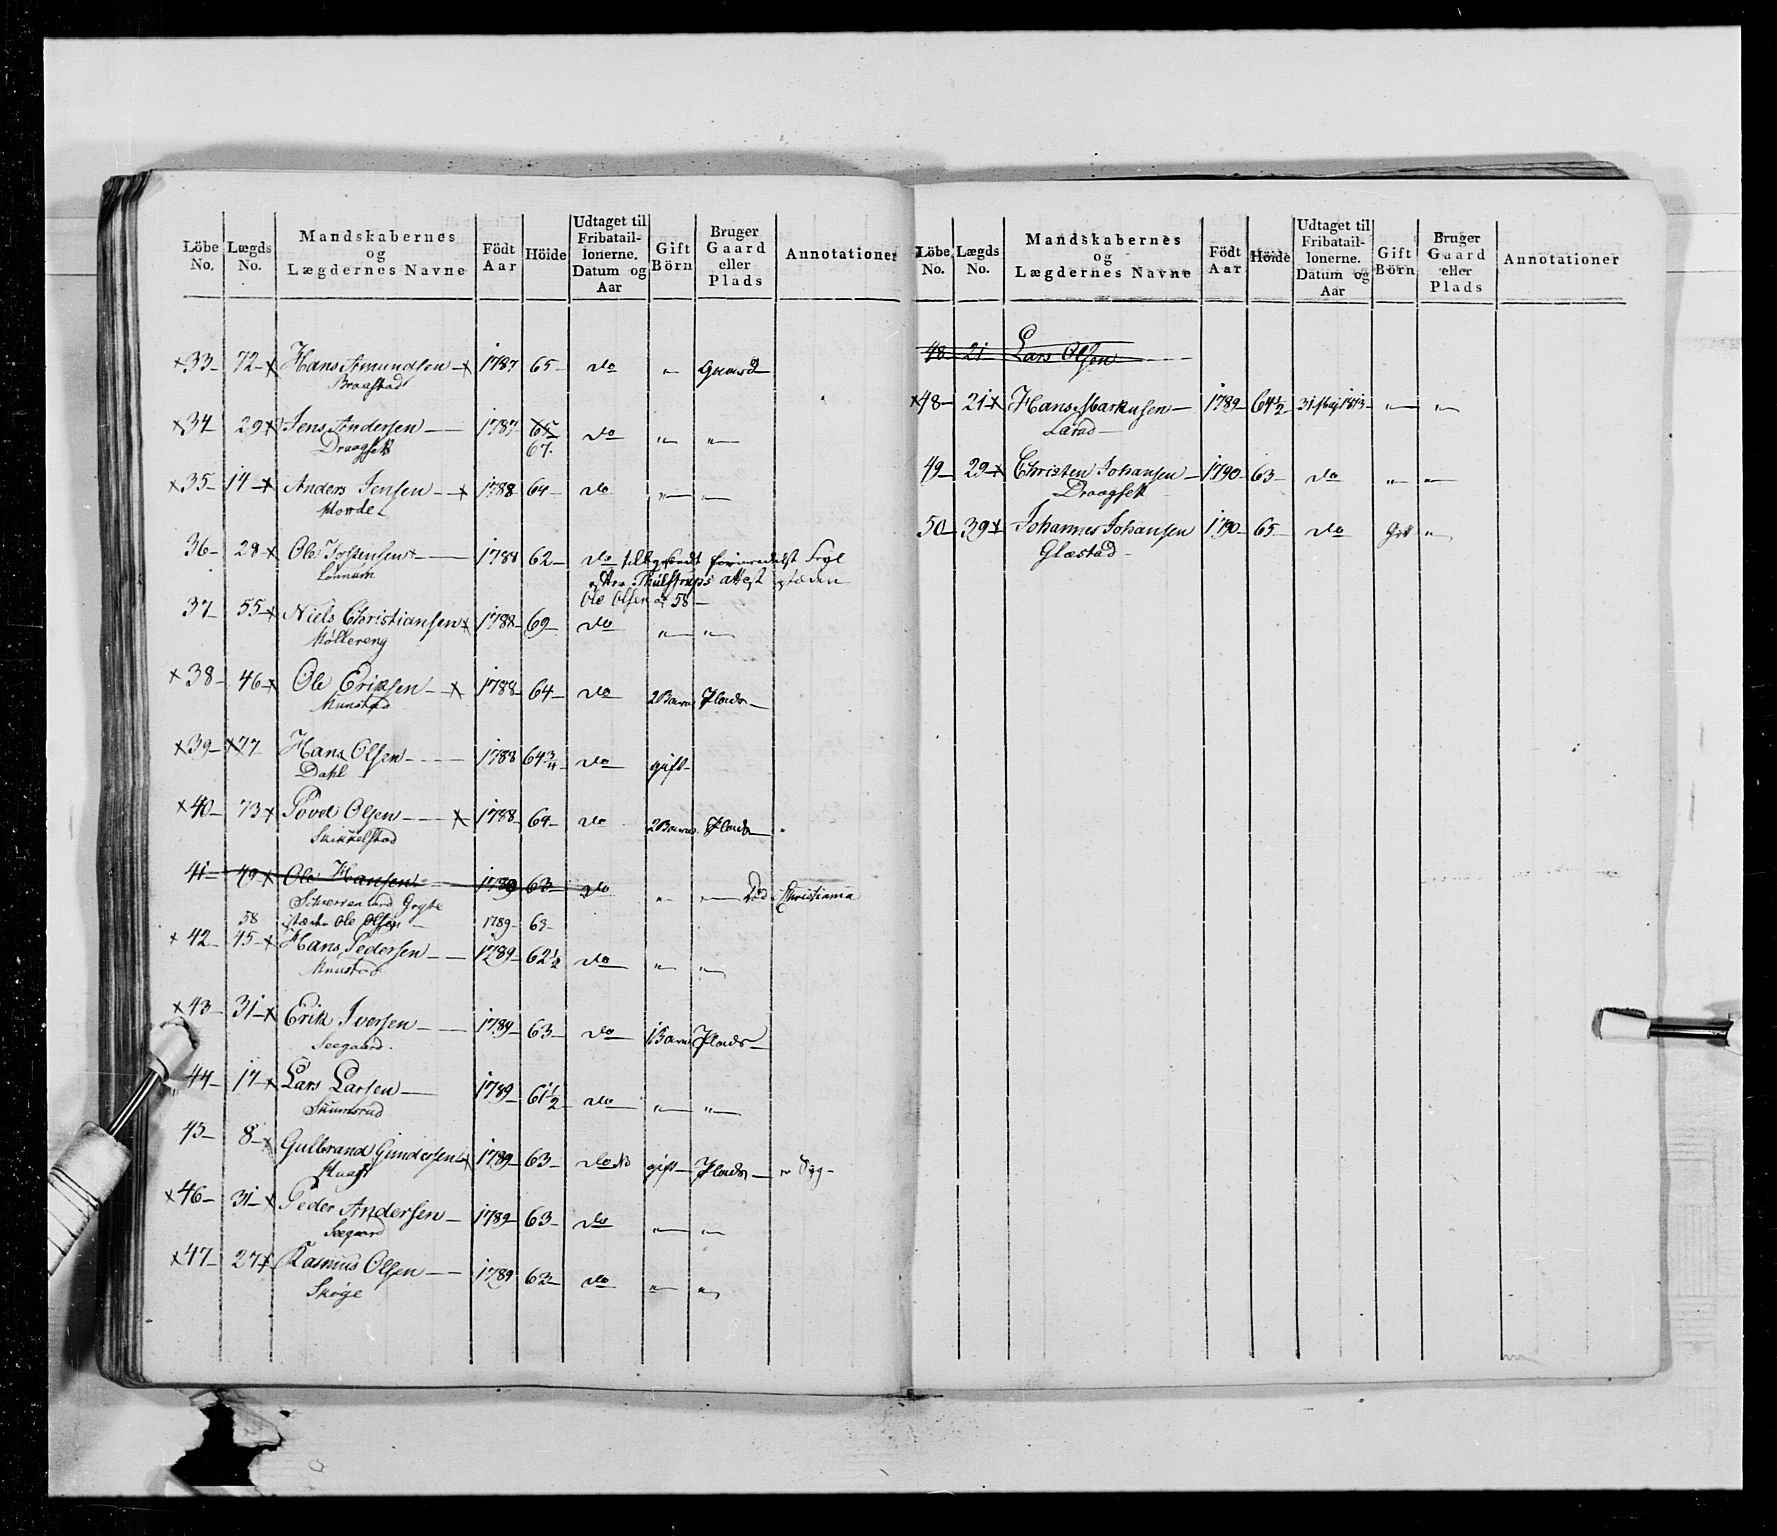 Löbe No. Lægds No. Mandskabernes og Lægdernes Navne Födt Aar Höide Udtaget til Fribatail-lonerne. Datum og Aar Gift Börn Bruger Gaard eller Plads Annotationer
×33– 72–× Hans Amundsen –× 1787 65– do „ Gaard
Braastad
×34 29× Jens Andersen — 1787 65 do „ „
Draagsett 67.
×35– 14–× Anders Jensen –× 1788 64– do „ „
36– 28–× Ole 1788 62– do
Lønnum attest
Ole Olsen at 58–
37 55–× Niels Christiansen× 1788– 69– do „ „
Møllereng
×38– 46–× Ole Eriksen –× 1788– 64– do 2 Børn Plads–
×39– ×77 Hans Olsen - - - 1788 64 3/4 do gift–
Dahl
×40– 73× Povel Olsen - - –× 1788– 64– do 2 Børn. Plads
Skikkelstad
41– 49× Ole Hansen 1789 63– do „ „ Død i Christiania
58 Ole Olsen – 1789– 63–
×42– 45–× Hans Pedersen – 1789– 62 1/2 do „ „
×43– 31–× Erik Iversen – 1789– 63– do 1 Barn Plads–
Seegaard.
44– 17–× Lars Larsen — 1789– 61 1/2 do „ „
45– 8–× Gulbrand Gundersen× 1789– 63– do gift– Plads–
×46– 31–× Peder Andersen – 1789– 63– do „ „
Seegaard
×47– 27× Rasmus Olsen — 1789 63– do „ „
Skøge
Löbe No. Lægds No. Mandskabernes og Lægdernes Navne Födt Aar Höide Udtaget til Fribatail-lonerne. Datum og Aar Gift Börn Bruger Gaard eller Plads Annotationer
48– 21– Lars Olsen
×48– 21× Hans Markusen– 1789– 64 1/2 31 Maj 1813– „ „
49– 29–× Christen Johansen– 1790– 63– do „ „
Draagsett
50– 39× Johannes Johansen 1790– 65– do Gift „
Glæstad–